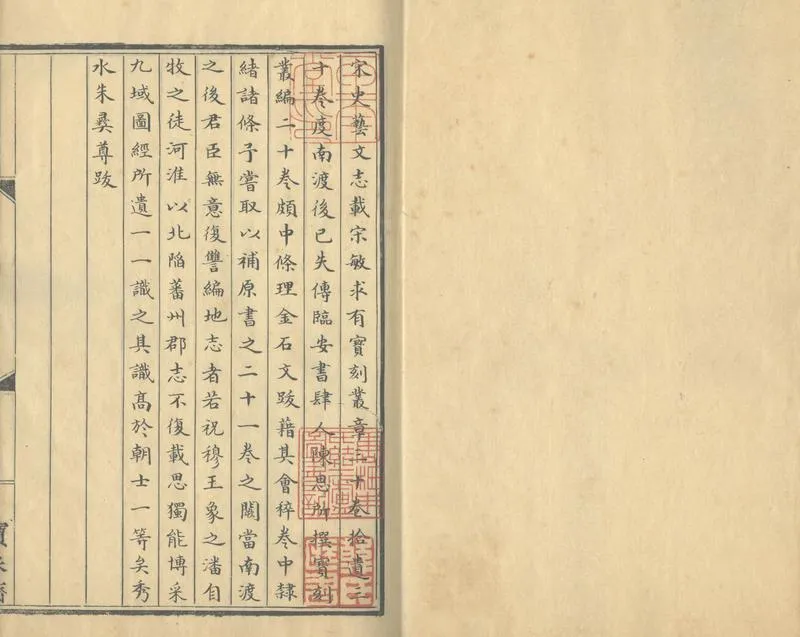 宋史藝文志載宋敏求有寶刻叢章三十卷拾遺三
十卷度南渡後已失傳臨安書肆人陳思所撰寶刻
叢編二十卷頗中條理金石文跋藉其會稡卷中隷
緒諸條予嘗取以補原書之二十一卷之闕當南渡
之後君臣無意復讐編地志者若祝穆王象之潘自
牧之徒河淮以北陷蕃州郡志不復載思獨能博采
九域圖經所遺一一識之其識髙於朝士一等矣秀
水朱彝尊跋